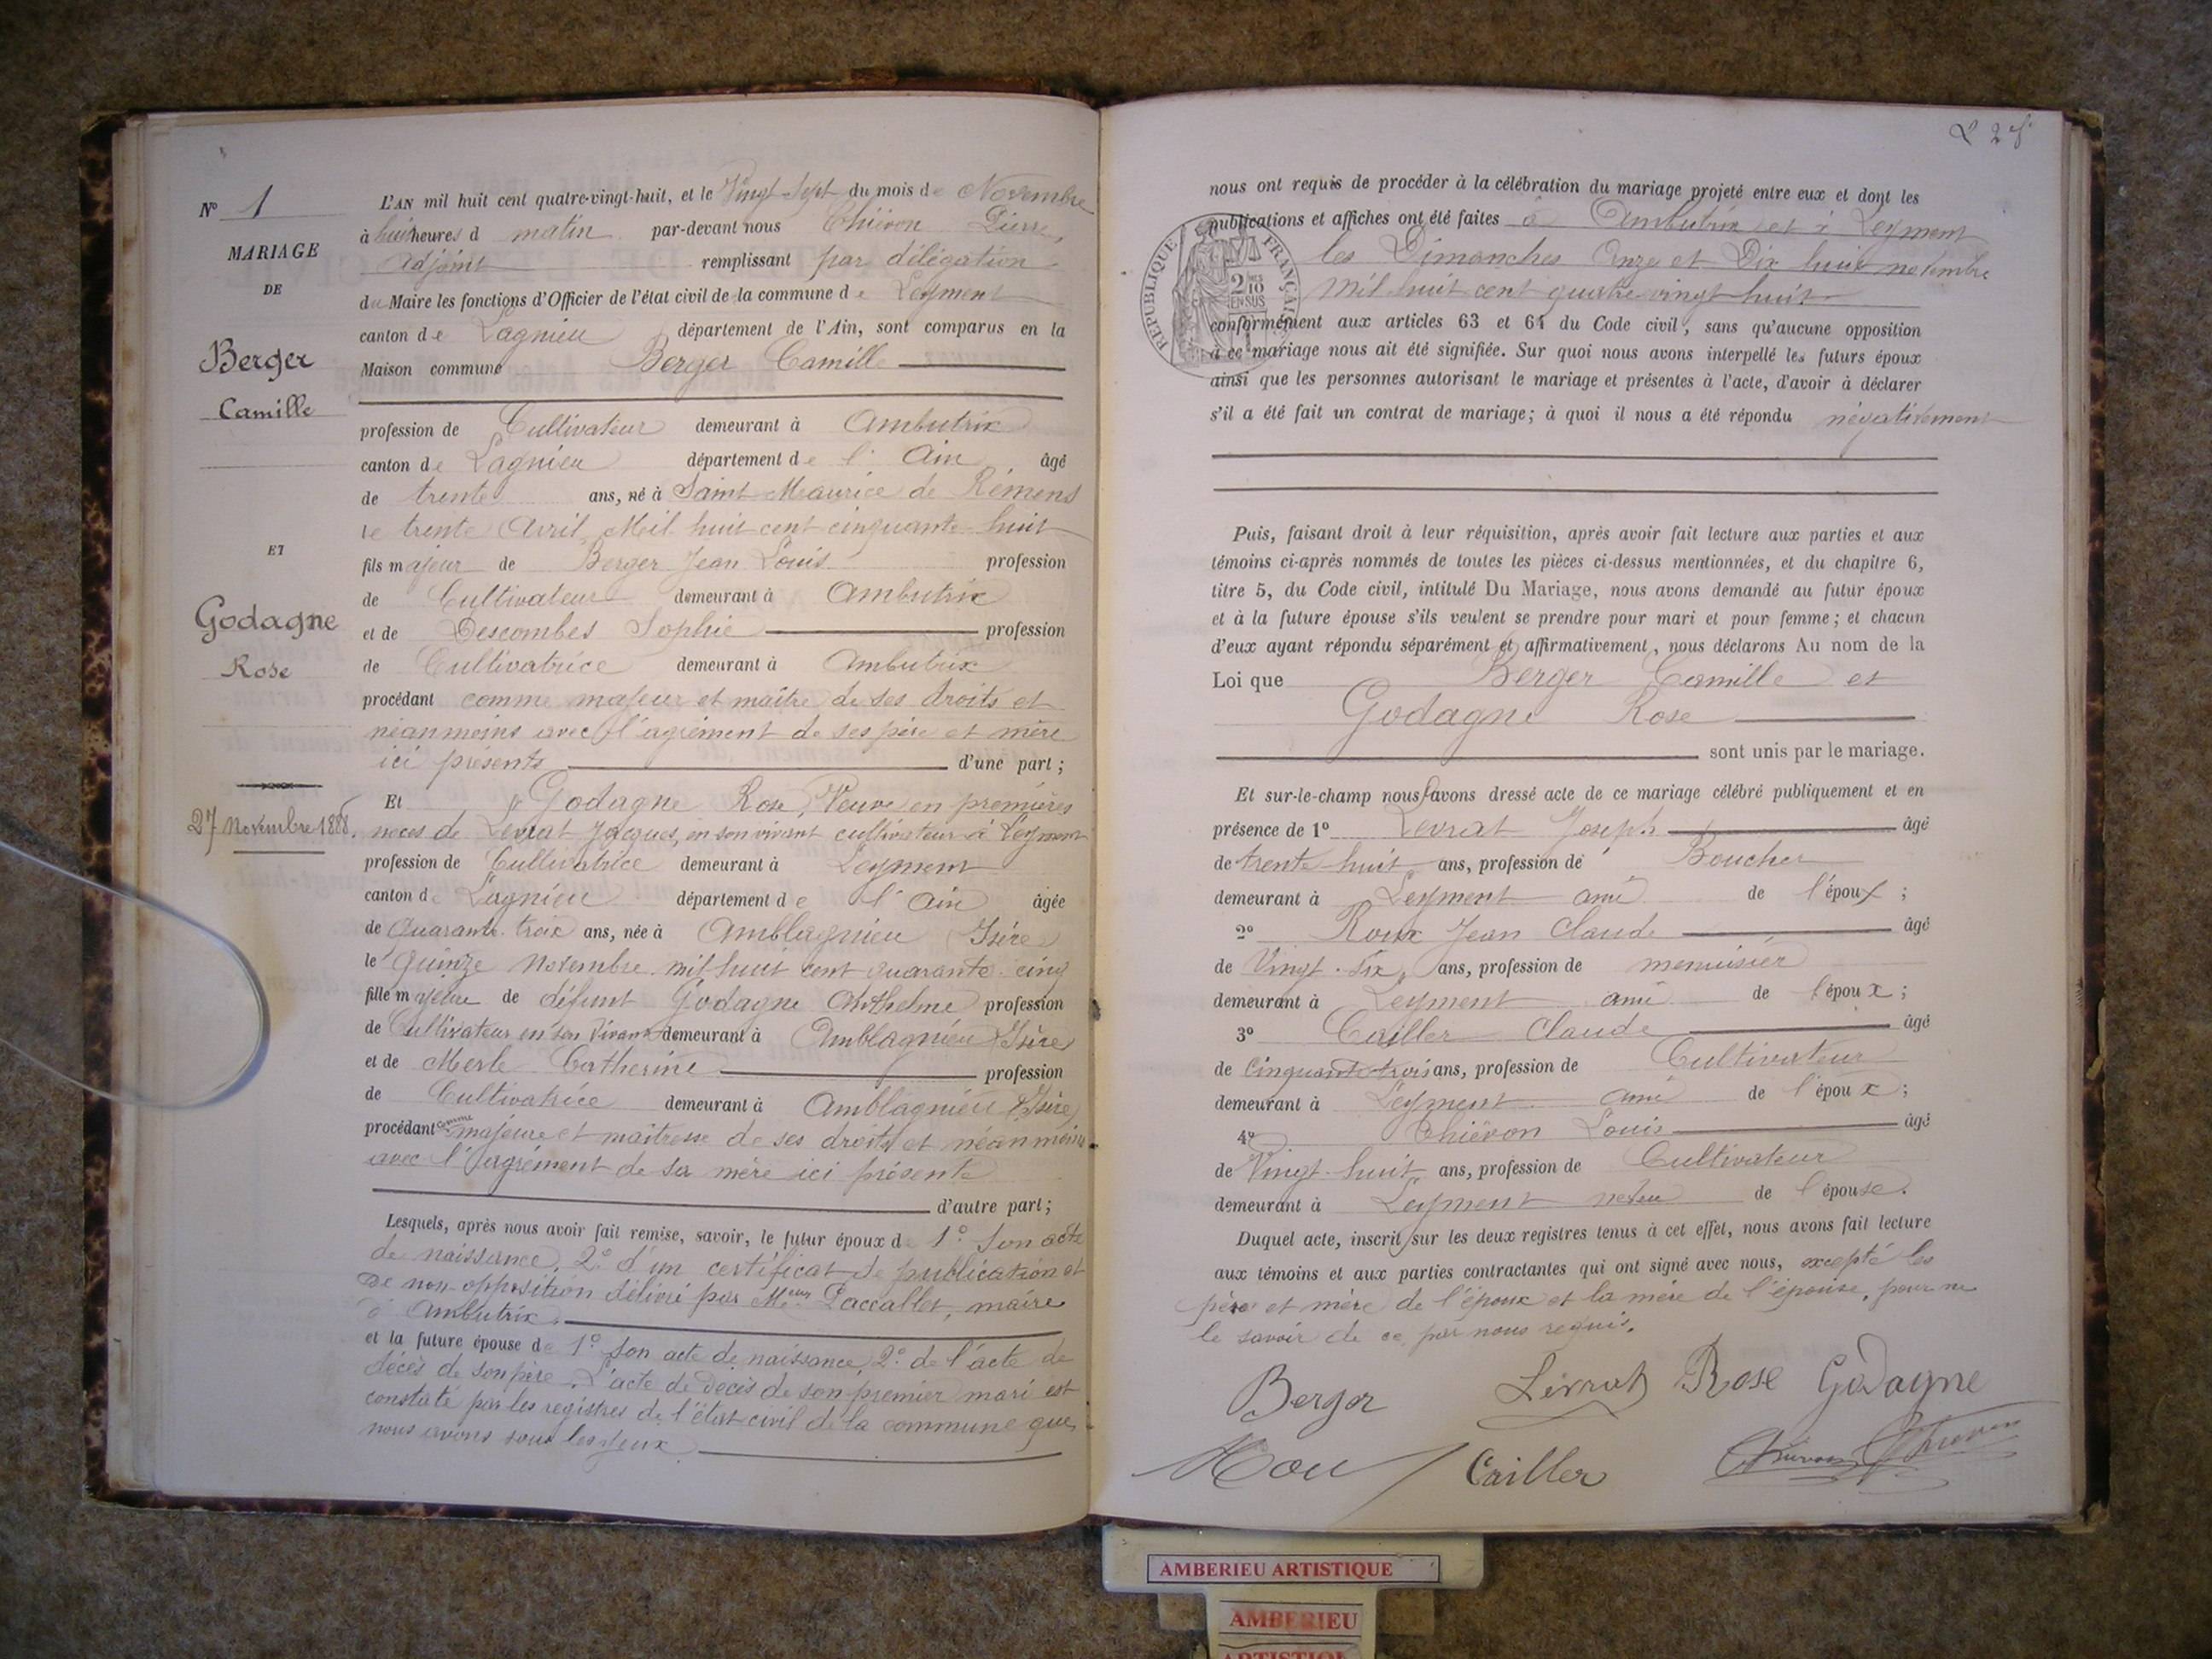 N° 1
MARIAGE
DE
Berger
Camille
ET
Godagne
Rose
27 Novembre 1888.
L'AN mil huit cent quatre-vingt-huit, et le Vingt-Sept du mois de Novembre
à huit heures d matin par-devant nous Chiéron Pierre,
Adjoint remplissant par délégation
du Maire les fonctions d'Officier de l'état civil de la commune de Leyment
canton de Lagnieu département de l'Ain, sont comparus en la
Maison commune Berger Camille
profession de Cultivateur demeurant à Ambutrix
canton de Lagnieu département de l'Ain âgé
de trente ans, né à Saint-Maurice de Rémens
le trente Avril Mil huit cent cinquante-huit
fils majeur de Berger Jean Louis profession
de Cultivateur demeurant à Ambutrix
et de Descombes Sophie profession
de Cultivatrice demeurant à Ambutrix
procédant comme majeur et maître de ses droits et
néanmoins avec l'agrément de ses père et mère
ici présents d'une part;
Et Godagne Rose, Veuve en premières
noces de Levrat Jacques, en son vivant cultivateur à Leyment
profession de Cultivatrice demeurant à Leyment
canton de Lagnieu département de l'Ain âgée
de Quarante-trois ans, née à Amblagnieu (Isère)
le Quinze Novembre mil huit cent quarante-cinq
fille majeure de défunt Godagne Anthelme profession
de Cultivateur en son vivant demeurant à Amblagnieu (Isère)
et de Merle Catherine profession
de Cultivatrice demeurant à Amblagnieu (Isère)
procédant comme majeure et maîtresse de ses droits et néanmoins
avec l'agrément de sa mère ici présente
d'autre part;
Lesquels, après nous avoir fait remise, savoir, le futur époux de 1° Son acte
de naissance, 2° d'un certificat de publication et
de non-opposition délivré par Mr Laccallet, maire
à Ambutrix.
et la future épouse de 1° Son acte de naissance, 2° de l'acte de
décès de son père. L'acte de décès de son premier mari est
constaté par les registres de l'état civil de la commune que
nous avons sous les yeux
2
nous ont requis de procéder à la célébration du mariage projeté entre eux et dont les
publications et affiches ont été faites à Ambutrix et à Leyment
les Dimanches Onze et Dix huit novembre
Mil huit cent quatre-vingt-huit
RÉPUBLIQUE FRANÇAISE
2/10 EN SUS
conformément aux articles 63 et 64 du Code civil, sans qu'aucune opposition
à ce mariage nous ait été signifiée. Sur quoi nous avons interpellé les futurs époux
ainsi que les personnes autorisant le mariage et présentes à l'acte, d'avoir à déclarer
s'il a été fait un contrat de mariage; à quoi il nous a été répondu négativement
Puis, faisant droit à leur réquisition, après avoir fait lecture aux parties et aux
témoins ci-après nommés de toutes les pièces ci-dessus mentionnées, et du chapitre 6,
titre 5, du Code civil, intitulé Du Mariage, nous avons demandé au futur époux
et à la future épouse s'ils veulent se prendre pour mari et pour femme; et chacun
d'eux ayant répondu séparément et affirmativement, nous déclarons Au nom de la
Loi que Berger Camille et
Godagne Rose
sont unis par le mariage.
Et sur-le-champ nous avons dressé acte de ce mariage célébré publiquement et en
présence de 1° Levrat Joseph âgé
de trente-huit ans, profession de Boucher
demeurant à Leyment ami de l'époux;
2° Roux Jean Claude âgé
de Vingt-six ans, profession de menuisier
demeurant à Leyment ami de l'époux;
3° Cailler Claude âgé
de Cinquante-trois ans, profession de Cultivateur
demeurant à Leyment ami de l'époux;
4° Chiéron Louis âgé
de Vingt-huit ans, profession de Cultivateur
demeurant à Leyment neveu de l'épouse.
Duquel acte, inscrit sur les deux registres tenus à cet effet, nous avons fait lecture
aux témoins et aux parties contractantes qui ont signé avec nous, excepté les
père et mère de l'époux et la mère de l'épouse, pour ne
le savoir de ce par nous requis.
Berger Levrat Rose Godagne
Cailler
AMBERIEU ARTISTIQUE
AMBERIEU
ARTISTIQUE